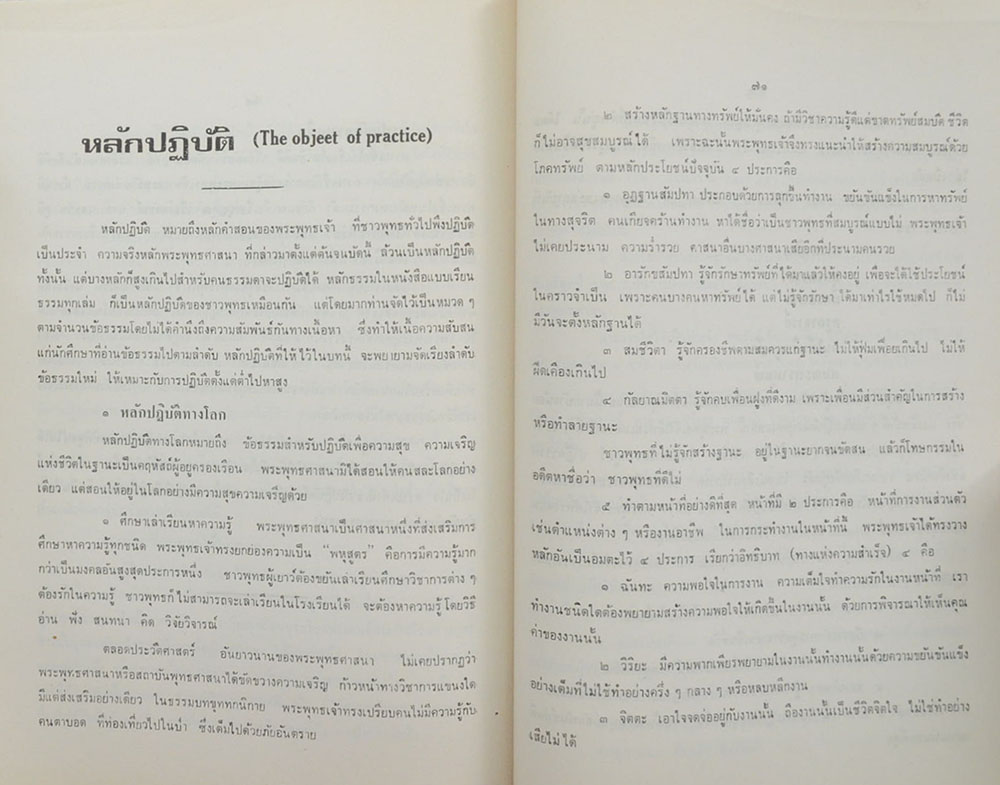 หลักปฏิบัติ (The objeet of practice)
หลักปฏิบัติ หมายถึงหลักคำสอนของพระพุทธเจ้า ที่ชาวพุทธทั่วไปพึงปฏิบัติ
เป็นประจำ ความจริงหลักพระพุทธศาสนา ที่กล่าวมาตั้งแต่ต้นจนบัดนี้ ล้วนเป็นหลักปฏิบัติ
ทั้งนั้น แต่บางหลักก็สูงเกินไปสำหรับคนธรรมดาจะปฏิบัติได้ หลักธรรมในหนังสือแบบเรียน
ธรรมทุกเล่ม ก็เป็นหลักปฏิบัติของชาวพุทธเหมือนกัน แต่โดยมากท่านจัดไว้เป็นหมวด ๆ
ตามจำนวนข้อธรรมโดยไม่ได้คำนึงถึงความสัมพันธ์กันทางเนื้อหา ซึ่งทำให้เนื้อความสับสน
แก่นักศึกษาที่อ่านข้อธรรมไปตามลำดับ หลักปฏิบัติที่ให้ไว้ในบทนี้ จะพยายามจัดเรียงลำดับ
ข้อธรรมใหม่ ให้เหมาะกับการปฏิบัติตั้งแต่ต่ำไปหาสูง
๑ หลักปฏิบัติทางโลก
หลักปฏิบัติทางโลกหมายถึง ข้อธรรมสำหรับปฏิบัติเพื่อความสุข ความเจริญ
แห่งชีวิตในฐานะเป็นคฤหัสถ์ผู้อยู่ครองเรือน พระพุทธศาสนามิได้สอนให้คนสละโลกอย่าง
เดียว แต่สอนให้อยู่ในโลกอย่างมีความสุขความเจริญด้วย
๑ ศึกษาเล่าเรียนหาความรู้ พระพุทธศาสนาเป็นศาสนาหนึ่งที่ส่งเสริมการ
ศึกษาหาความรู้ทุกชนิด พระพุทธเจ้าทรงยกย่องความเป็น “พหุสูตร” คือการมีความรู้มาก
กว่าเป็นมงคลอันสูงสุดประการหนึ่ง ชาวพุทธผู้เยาว์ต้องขยันเล่าเรียนศึกษาวิชาการต่าง ๆ
ต้องรักในความรู้ ชาวพุทธก็ไม่สามารถจะเล่าเรียนในโรงเรียนได้ จะต้องหาความรู้โดยวิธี
อ่าน ฟัง สนทนา คิด วิจัยวิจารณ์
ตลอดประวัติศาสตร์ อันยาวนานของพระพุทธศาสนา ไม่เคยปรากฏว่า
พระพุทธศาสนาหรือสถาบันพุทธศาสนาได้ขัดขวางความเจริญ ก้าวหน้าทางวิชาการแขนงใด
มีแต่ส่งเสริมอย่างเดียว ในธรรมบทขุททกนิกาย พระพุทธเจ้าทรงเปรียบคนไม่มีความรู้กับ
คนตาบอด ที่ท่องเที่ยวไปในป่า ซึ่งเต็มไปด้วยภัยอันตราย
๗๑
๒ สร้างหลักฐานทางทรัพย์ให้มั่นคง ถ้ามีวิชาความรู้ดีแต่ขาดทรัพย์สมบัติ ชีวิต
ก็ไม่อาจสุขสมบูรณ์ได้ เพราะฉะนั้นพระพุทธเจ้าจึงทรงแนะนำให้สร้างความสมบูรณ์ด้วย
โภคทรัพย์ ตามหลักประโยชน์ปัจจุบัน ๔ ประการคือ
๑ อุฏฐานสัมปทา ประกอบด้วยการลุกขึ้นทำงาน ขยันขันแข็งในการหาทรัพย์
ในทางสุจริต คนเกียจคร้านทำงาน หาได้ชื่อว่าเป็นชาวพุทธที่สมบูรณ์แบบไม่ พระพุทธเจ้า
ไม่เคยประนาม ความร่ำรวย ศาสนาอื่นบางศาสนาเสียอีกที่ประนามคนรวย
๒ อารักขสัมปทา รู้จักรักษาทรัพย์ที่ได้มาแล้วให้คงอยู่ เพื่อจะได้ใช้ประโยชน์
ในคราวจำเป็น เพราะคนบางคนหาทรัพย์ได้ แต่ไม่รู้จักรักษา ได้มาเท่าไรใช้หมดไป ก็ไม่
มีวันจะตั้งหลักฐานได้
๓ สมชีวิตา รู้จักครองชีพตามสมควรแก่ฐานะ ไม่ให้ฟุ่มเฟือยเกินไป ไม่ให้
ฝืดเคืองเกินไป
๔ กัลยาณมิตตา รู้จักคบเพื่อนฝูงที่ดีงาม เพราะเพื่อนมีส่วนสำคัญในการสร้าง
หรือทำลายฐานะ
ชาวพุทธที่ไม่รู้จักสร้างฐานะ อยู่ในฐานะยากจนขัดสน แล้วก็โทษกรรมใน
อดีตหาชื่อว่า ชาวพุทธที่ดีไม่
๕ ทำตามหน้าที่อย่างดีที่สุด หน้าที่มี ๒ ประการคือ หน้าที่การงานส่วนตัว
เช่นตำแหน่งต่าง ๆ หรืองานอาชีพ ในการกระทำงานในหน้าที่นี้ พระพุทธเจ้าได้ทรงวาง
หลักอันเป็นอมตะไว้ ๔ ประการ เรียกว่าอิทธิบาท (ทางแห่งความสำเร็จ) ๔ คือ
๑ ฉันทะ ความพอใจในการงาน ความเต็มใจทำความรักในงานหน้าที่ เรา
ทำงานชนิดใดต้องพยายามสร้างความพอใจให้เกิดขึ้นในงานนั้น ด้วยการพิจารณาให้เห็นคุณ
ค่าของงานนั้น
๒ วิริยะ มีความพากเพียรพยายามในงานนั้นทำงานนั้นด้วยความขยันขันแข็ง
อย่างเต็มที่ไม่ใช่ทำอย่างครึ่ง ๆ กลาง ๆ หรือหลบหลีกงาน
๓ จิตตะ เอาใจจดจ่ออยู่กับงานนั้น ถืองานนั้นเป็นชีวิตจิตใจ ไม่ใช่ทำอย่าง
เสียไม่ได้